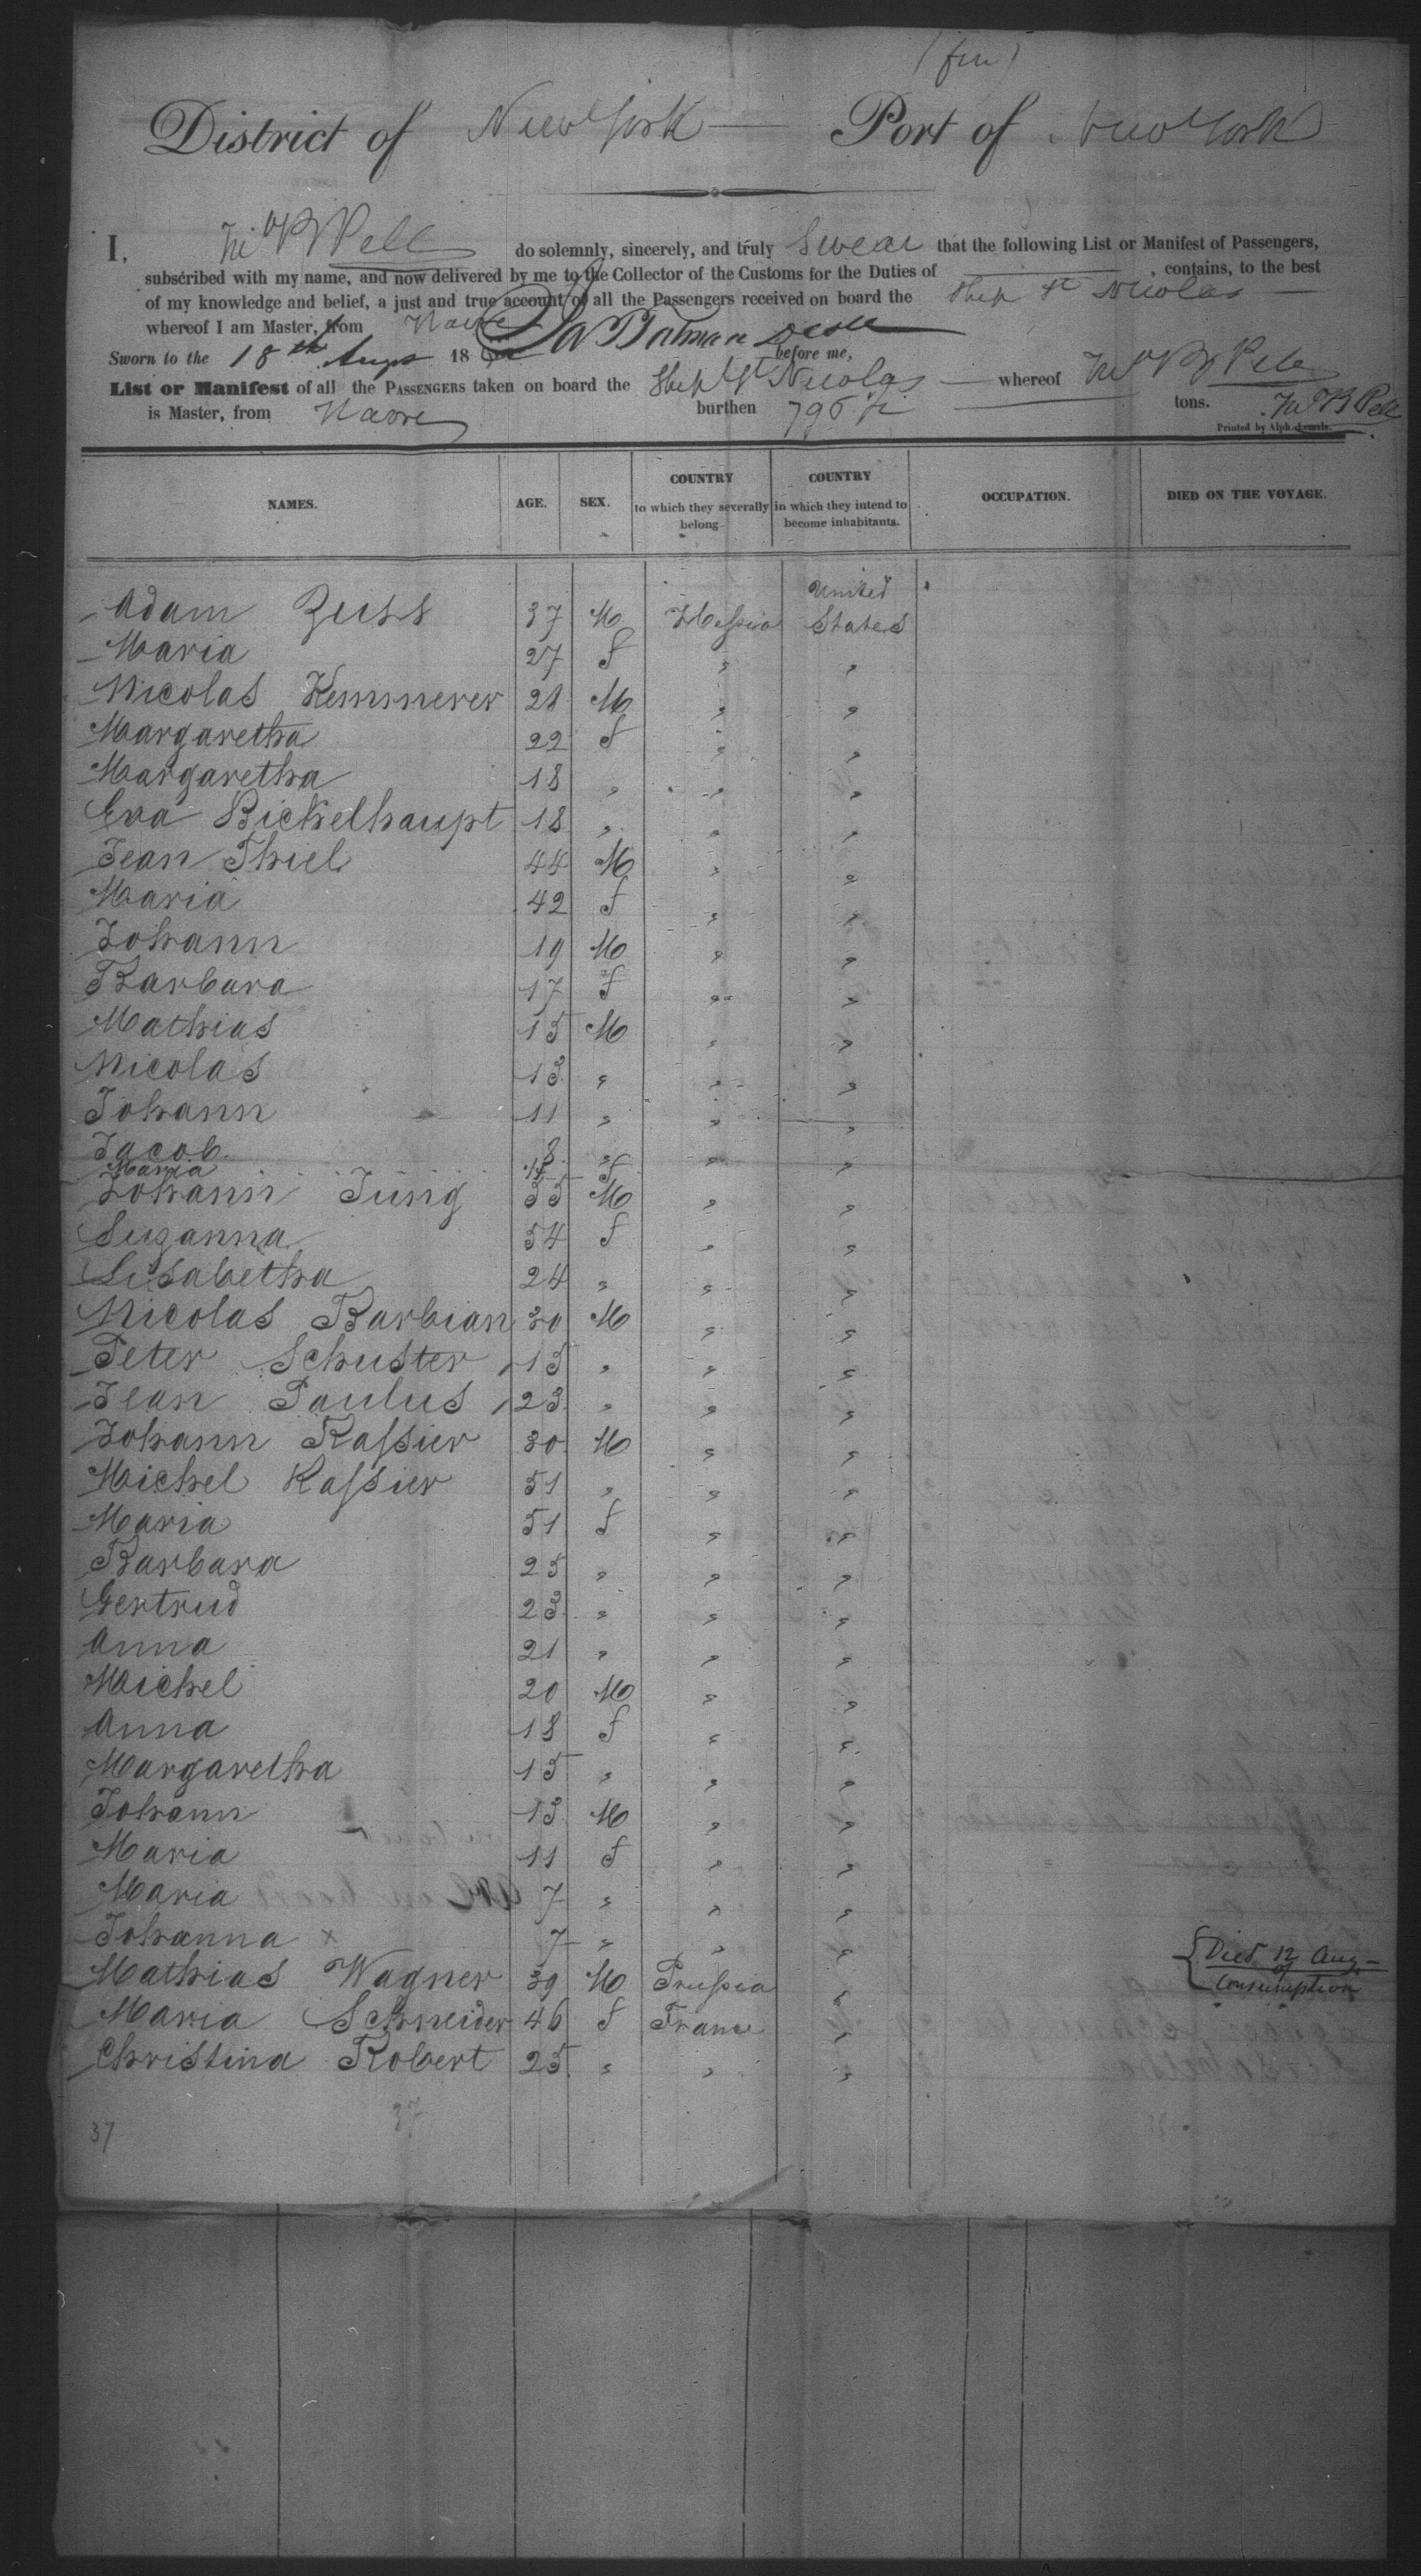 District of New York Port of New York
I, Wm B Pell do solemnly, sincerely, and truly Swear that the following List or Manifest of Passengers,
subscribed with my name, and now delivered by me to the Collector of the Customs for the Duties of , contains, to the best
of my knowledge and belief, a just and true account of all the Passengers received on board the Ship St Nicolas
whereof I am Master, from Havre
Sworn to the 18th Augt 18 before me,
List or Manifest of all the PASSENGERS taken on board the Ship St Nicolas whereof Wm B Pell
is Master, from Havre burthen 796 tons. Wm B Pell
Printed by Alph. Lemale.
NAMES. AGE. SEX. COUNTRY to which they severally belong COUNTRY in which they intend to become inhabitants. OCCUPATION. DIED ON THE VOYAGE.
Adam Zuss 37 M Hessia United States
Maria 27 f " "
Nicolas Kemmerer 28 M " "
Margaretha 22 f " "
Margaretha 18 " " "
Eva Bickelhaupt 18 " " "
Jean Thiel 44 M " "
Maria 42 f " "
Johann 19 M " "
Barbara 17 f " "
Mathias 15 M " "
Nicolas 13 " " "
Johann 11 " " "
Jacob 8 " " "
Maria f
Johann Jung 55 M " "
Suzanna 54 f " "
Lisabetha 24 " " "
Nicolas Barbian 30 M " "
Peter Schuster 15 " " "
Jean Paulus 23 " " "
Johann Kassier 30 M " "
Michel Kassier 51 " " "
Maria 51 f " "
Barbara 25 " " "
Gertrud 23 " " "
Anna 21 " " "
Michel 20 M " "
Anna 18 f " "
Margaretha 15 " " "
Johann 13 M " "
Maria 11 f " "
Maria 7 " " "
Johanna x 7 " " "
Mathias Wagner 39 M Prussia " Died 12 Aug of Consumption
Maria Schneider 46 f France "
Christina Robert 25 " " "
37 37